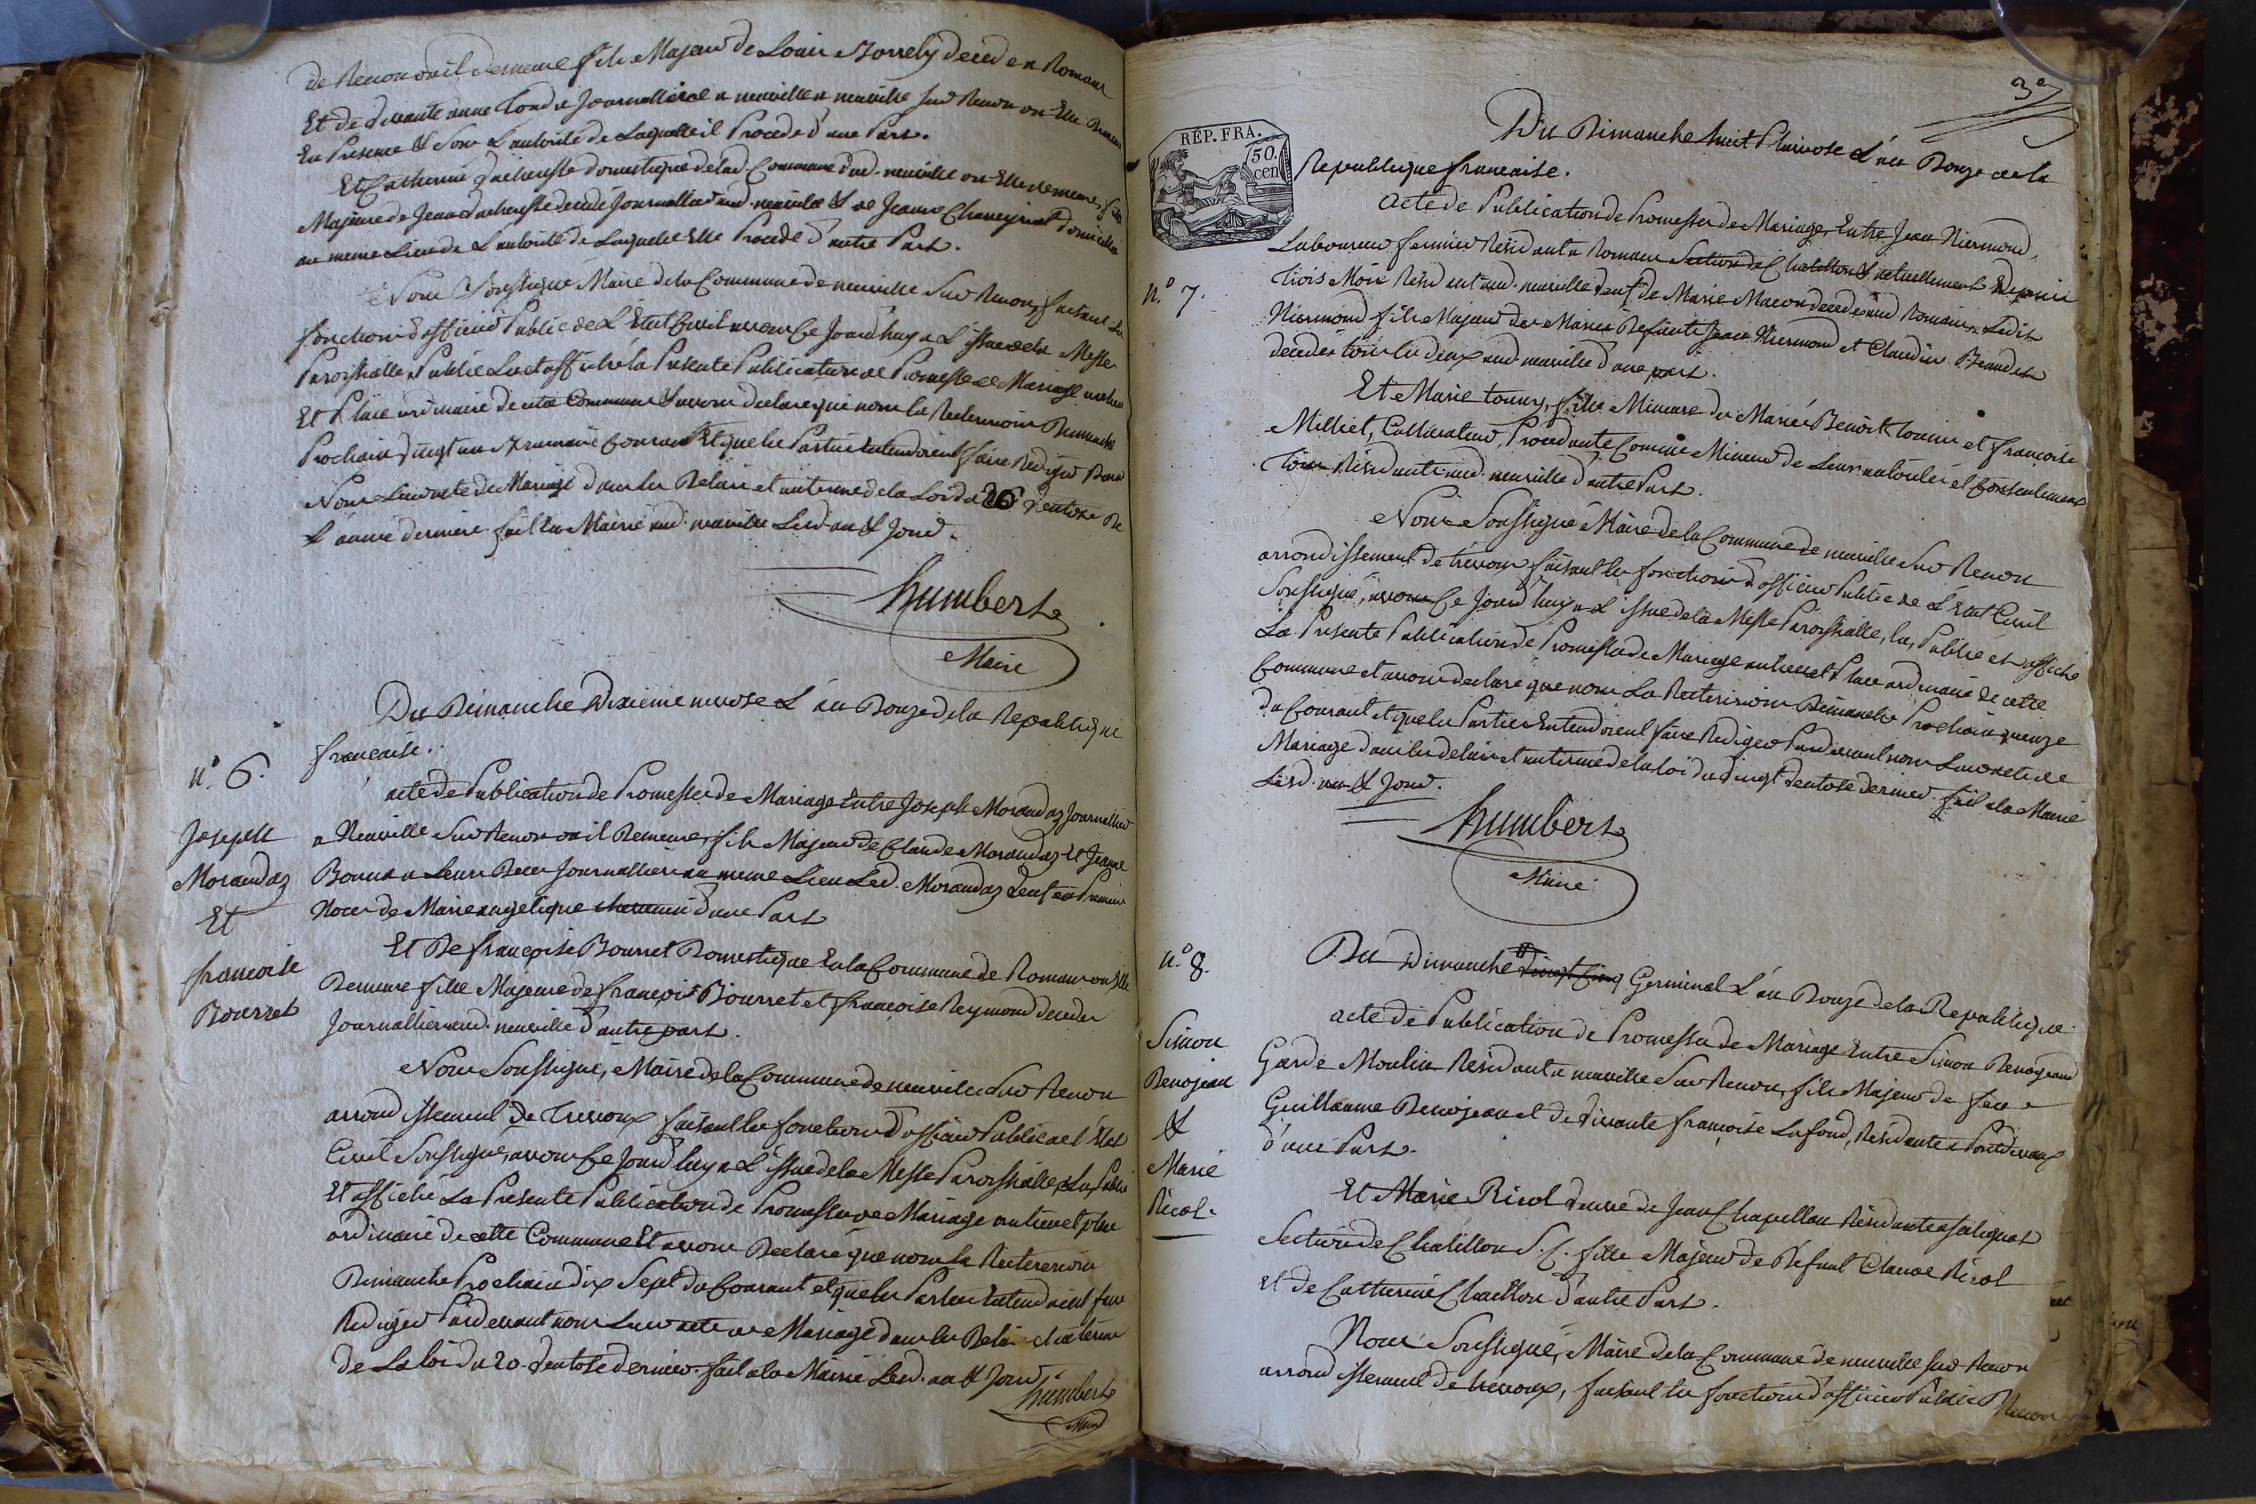 de Renon où il demeure fils Majeur de Louis Borrely décédé a Romans
Et de vivante anne Tondu Journallière a neuville a neuville sur Renon où Elle Demeure
En Présence & Sous L'autorité de Laquelle il Procede d'une Part.
Et Catherine Domestique de lad Commune dud. neuville où Elle demeure, fille
Majeure de Jean décédé Journallier aud. neuville & de Jeanne domiciliée
au meme Lieu de L'autorité de Laquelle Elle Procede d'autre Part.
Nous Soussigné Maire de la Commune de neuville Sur Renon, faisant les
fonctions d'officier Public de L'Etat Civil avons Ce Jourd'huy a L'issue de la Messe
Paroissialle Publié Lu et affiché la Présente Publication de Promesse de Mariage au lieu
Et Place ordinaire de cette Commune & avons declaré que nous la Réitererions Dimanche
Prochain vingt un courant Et que les Parties Entendoient faire Rédiger Par
Nous Leur acte de Mariage dans les Delais et au terme de la Loi du 26 ventose De
L'année dernière fait En Mairie aud. neuville Led. an & Jour.
humbert
Maire
Du Dimanche Dixieme nivose L'an Douze de la Republique
française.
n.° 6.
acte de Publication de Promesses de Mariage Entre Joseph Morandas Journallier
Joseph
Morandas
Et
francoise
Bourret
a Neuville Sur Renon où il Demeure, fils Majeur de Claude Morandas Et Jeanne
Journalliers au meme Lieu Led. Morandas veuf en Premiere
Noces de Marie angelique d'une Part
Et De françoise Bourret Domestique En la Commune de Romans où Elle
Demeure fille Majeure de françois Bourret et françoise Reymond décédés
Journalliers aud. neuville d'autre part.
Nous Soussigné, Maire de la Commune de neuville Sur Renon
arrondissement de Trevoux faisant les fonctions d'officier Public de L'Etat
Civil Soussigné, avons Ce Jourd'huy a L'issue de la Messe Paroissialle, Lu, Publié
Et affiché La Présente Publication de Promesse de Mariage au lieu et place
ordinaire de cette Commune Et avons Declaré que nous la Réitererions
Dimanche Prochain dix Sept du Courant et que les Parties Entendoient faire
Rédiger Pardevant nous Leur acte de Mariage dans les Delais et au terme
de La Loi du 20 ventose dernier. fait a la Mairie Led. an & Jour
humbert
Maire
3e
REP. FRA.
50.
cen
Du Dimanche huit Pluviose L'an Douze de la
Republique francaise.
acte de Publication de Promesses de Mariage, Entre Jean Niermond,
n.° 7.
Laboureur fermier Résidant a Romans Section de Chatillon & actuellement Depuis
trois Mois Résidant aud. neuville veuf de Marie Macon décédée aud Romans, Ledit
Niermond fils Majeur des Mariés Défunts Jean Niermond et Claudine Beaudet
décédés tous les deux aud. neuville d'une part.
Et Marie touny, fille Mineure des Mariés Benoît tounu et françoise
Milliet, Cultivateurs, Procédante Comme Mineure de Leurs autorité et Consentement
tous Résidants aud. neuville d'autre Part.
Nous Soussigné Maire de la Commune de neuville Sur Renon
arrondissement de trévoux faisant les fonctions d'officier Public de L'Etat Civil
Soussigné, avons Ce Jourd'huy a L'issue de la Messe Paroissialle, lu, Publié et affiché
La Présente Publication de Promesse de Mariage au lieu et Place ordinaire de cette
Commune et avons declaré que nous La Réitererions Dimanche Prochain quinze
du Courant et que les Parties Entendoient faire Rédiger Pardevant nous Leur acte de
Mariage dans les delais et au terme de la loi du vingt ventose dernier. fait a la Mairie
Lesd. an & Jour.
humbert
Maire
n.° 8.
Du Dimanche vingt Cinq Germinal L'an Douze de la Republique.
acte de Publication de Promesses de Mariage Entre Simon Renojeand
Simon
Renojean
&
Marie
Ricol.
Garde Moulin Résidant a neuville Sur Renon, fils Majeur de feu
Guillaume Renojean et de vivante françoise Lafond, Résidante a Pontdevaux
d'une Part.
Et Marie Ricol veuve de Jean Chapellon Résidante a
Section de Chatillon S. C. fille Majeure de Défunt Claude Ricol
Et de Catherine Chaillon d'autre Part.
Nous Soussigné, Maire de la Commune de neuville sur Renon
arrondissement de trevoux, faisant les fonctions d'officier Public